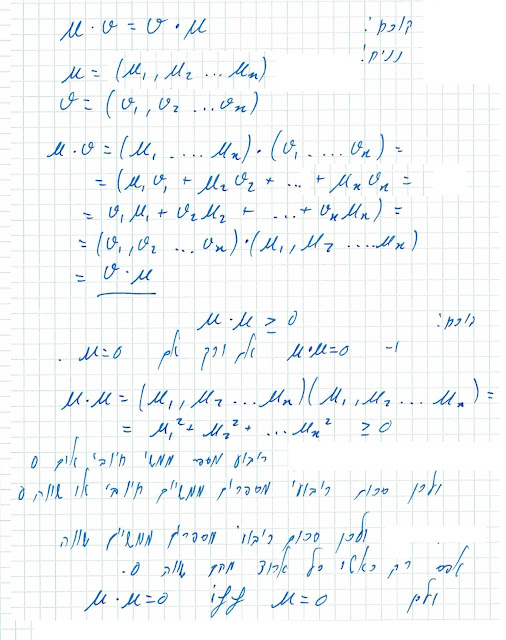 הוכח: u · v = v · u
נניח: u = (u₁, u₂ ... uₙ)
v = (v₁, v₂ ... vₙ)
u · v = (u₁ .... uₙ) · (v₁ .... vₙ) =
= (u₁v₁ + u₂v₂ + ... + uₙvₙ =
= v₁u₁ + v₂u₂ + ... + vₙuₙ) =
= (v₁, v₂ ... vₙ) · (u₁, u₂ .... uₙ)
= v · u
הוכח: u · u ≥ 0
ו- u·u=0 אם ורק אם u=0 .
u · u = (u₁, u₂ ... uₙ)(u₁, u₂ ... uₙ) =
= u₁² + u₂² + ... uₙ² ≥ 0
ריבוע מספר ממשי חיובי או 0
ולכן סכום ריבועי מספרים ממשיים חיובי או שווה 0
ולכן סכום ריבועי מספרים ממשיים שווה
אפס רק כאשר כל אחד מהם שווה 0.
ולכן u · u = 0 iff u = 0